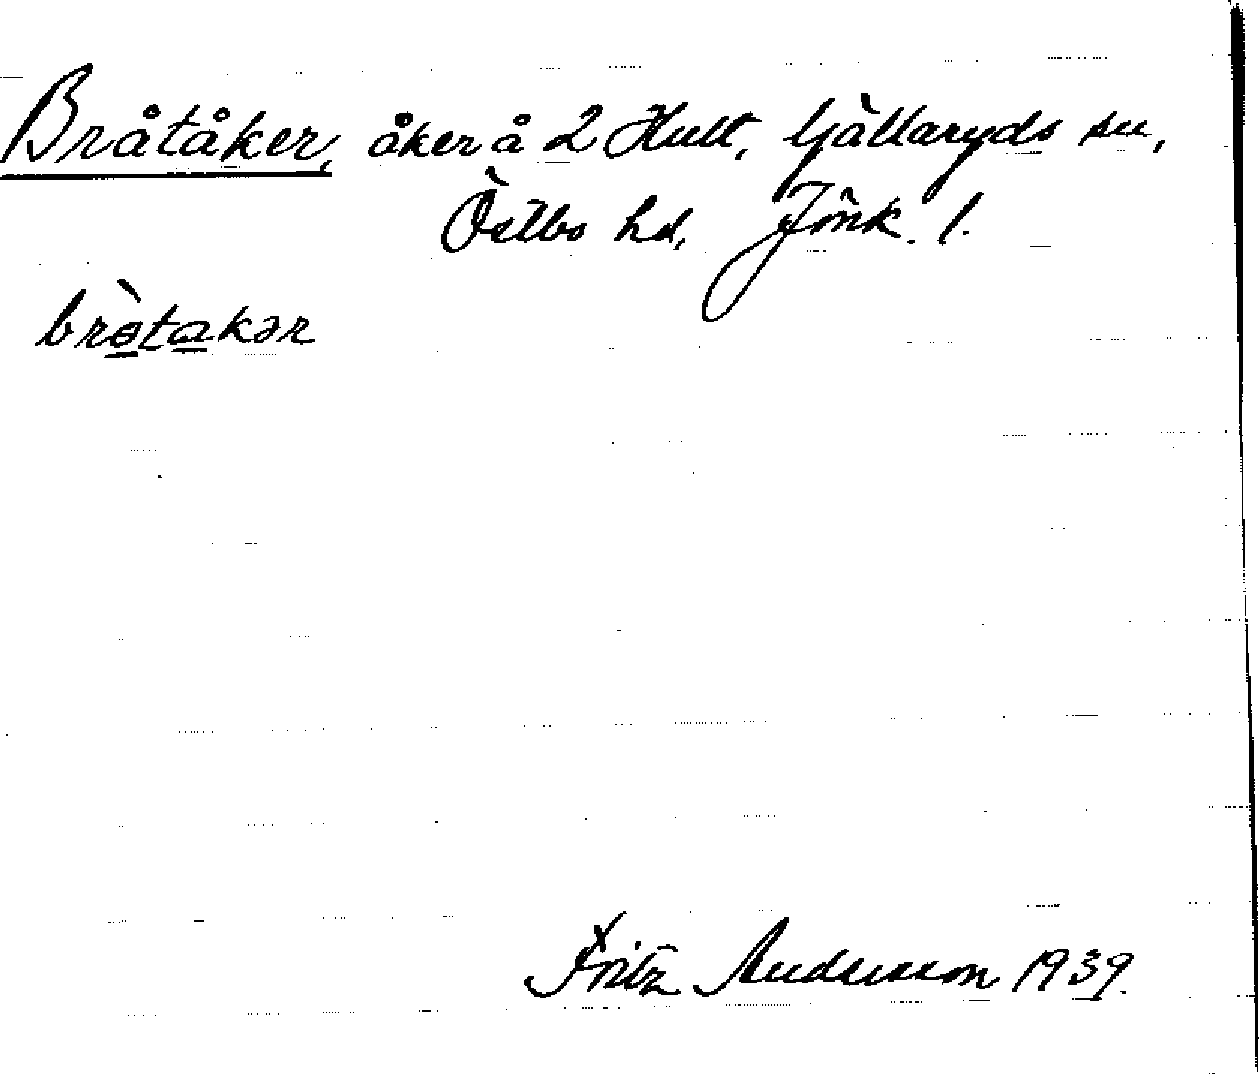 Bråtåker, åker å 2 Hult, Gällaryds sn,
Östbo hd, Jönk. l.
bròtakər
Fritz Andersson 1939.